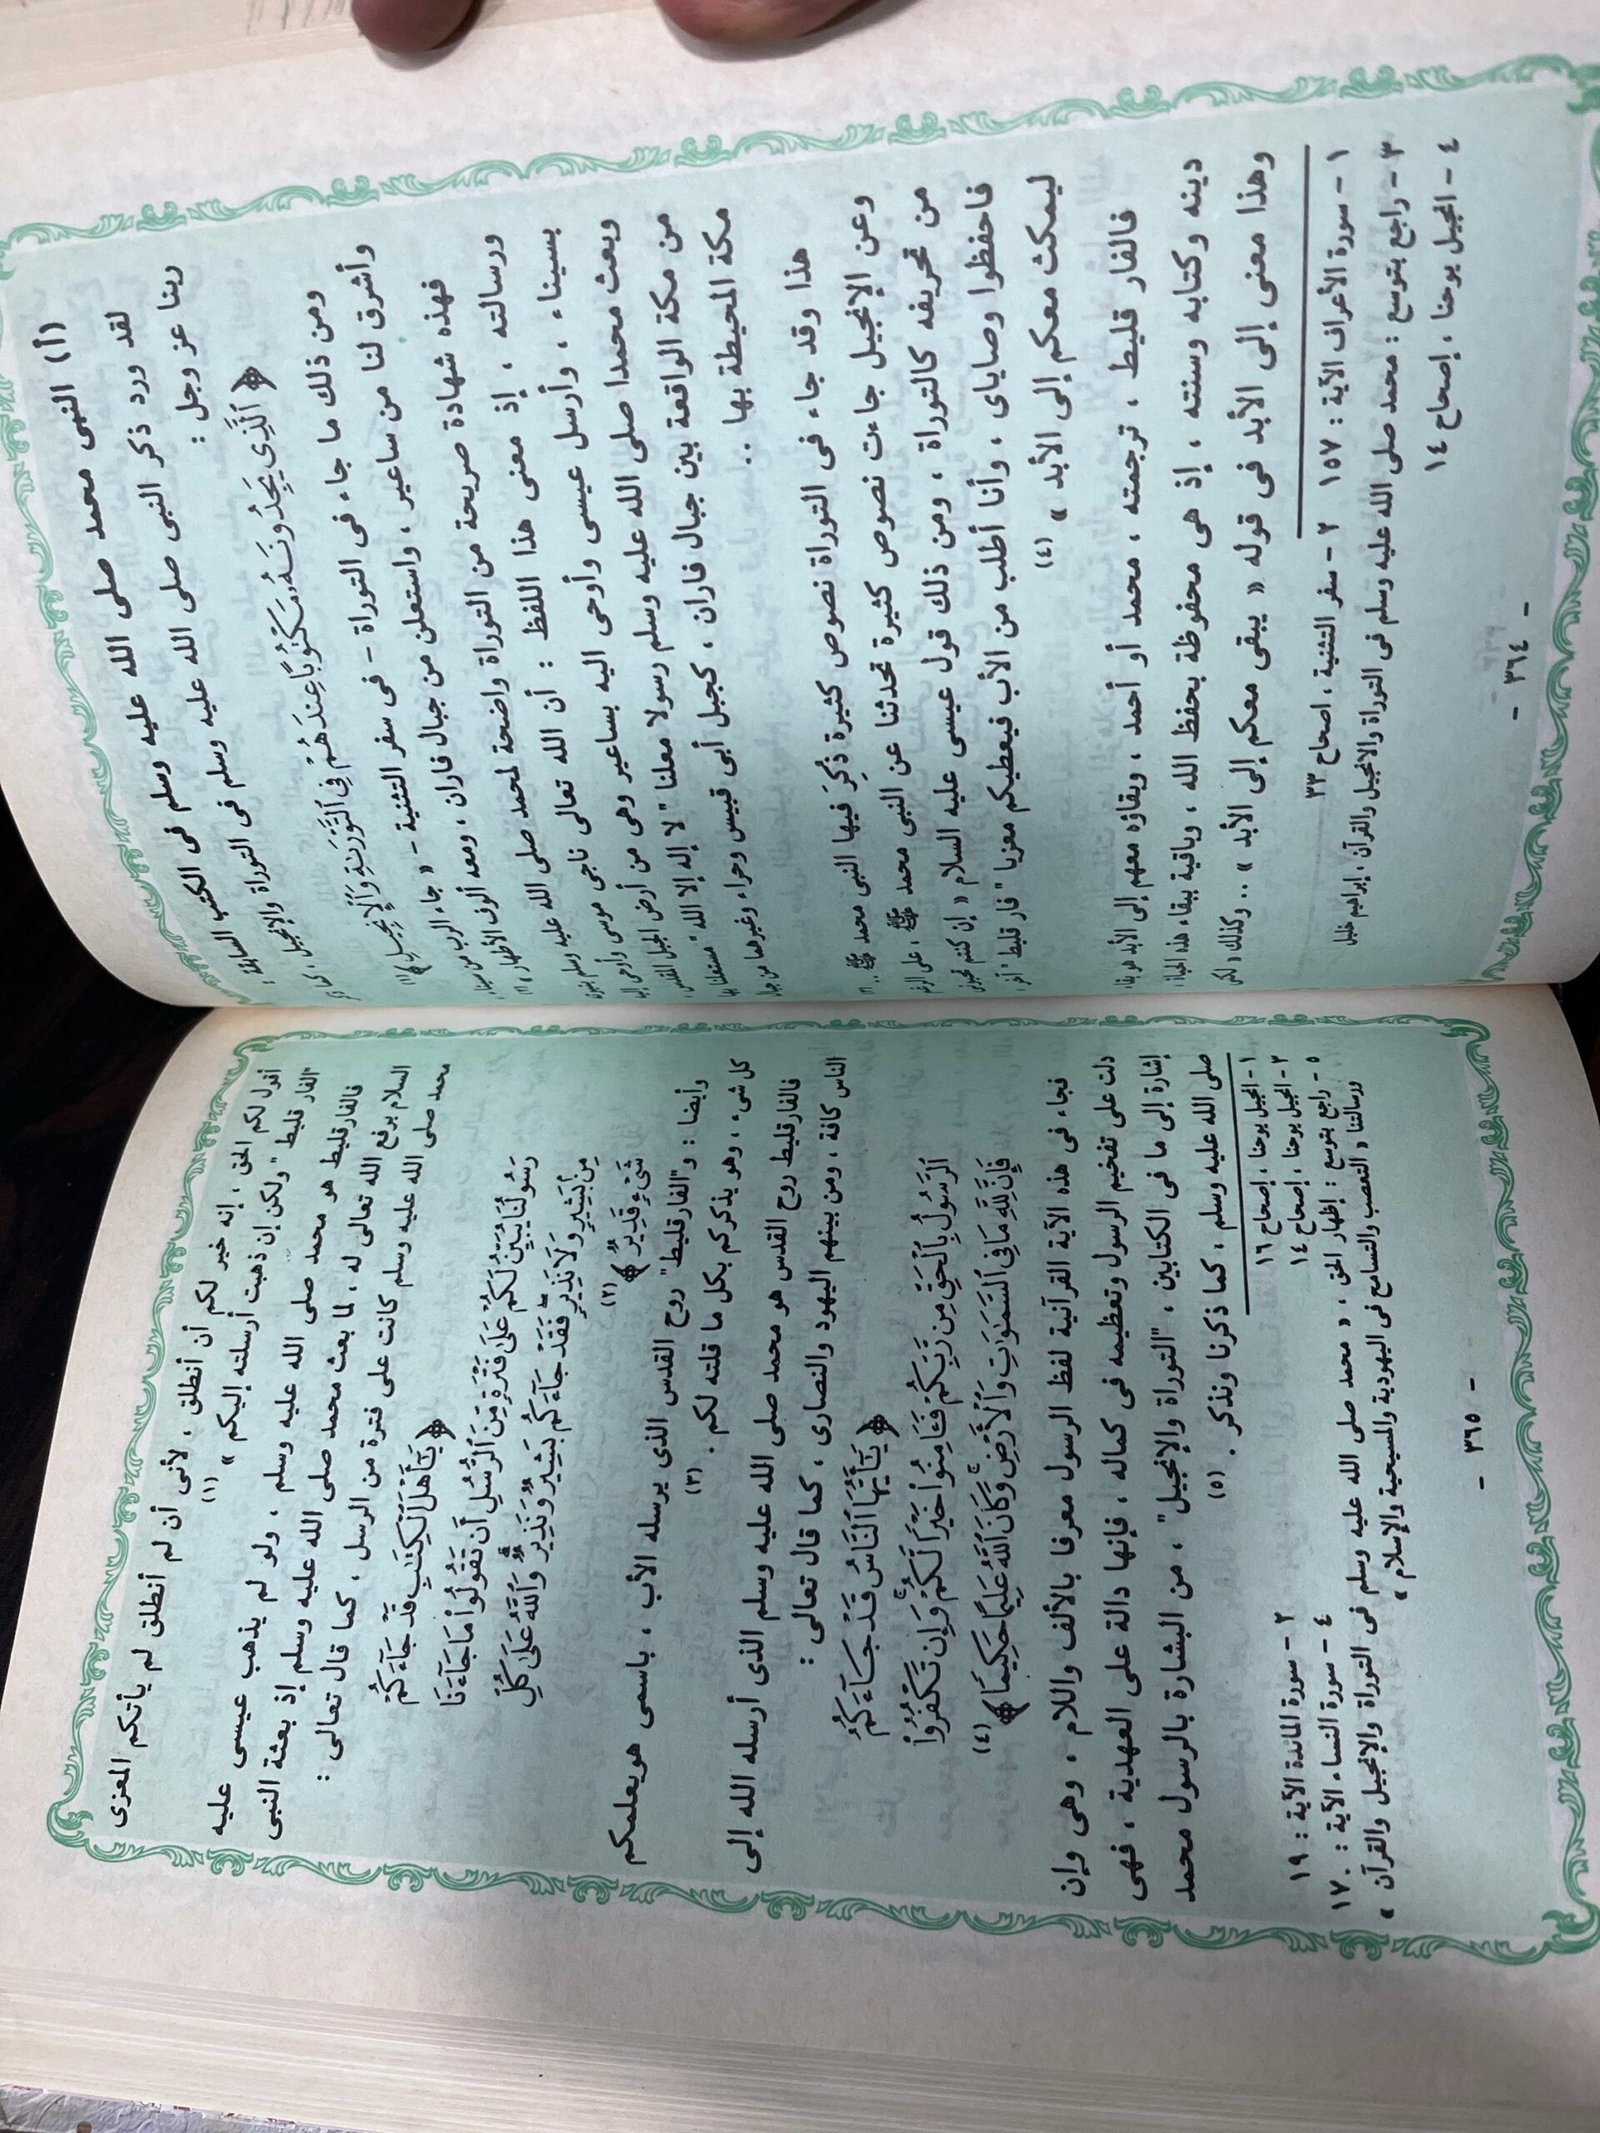 (أ) النبى محمد صلى الله عليه وسلم فى الكتب السابقة :
لقد ورد ذكر النبى صلى الله عليه وسلم فى التوراة والإنجيل ، كما ذكر
ربنا عز وجل :
﴿ ٱلَّذِى يَجِدُونَهُۥ مَكْتُوبًا عِندَهُمْ فِى ٱلتَّوْرَىٰةِ وَٱلْإِنجِيلِ ﴾ (١)
ومن ذلك ما جاء فى التوراة - فى سفر التثنية - « جاء الرب من سيناء
وأشرق لنا من ساعير ، واستعلن من جبال فاران ، ومعه ألوف الأطهار » (٢)
فهذه شهادة صريحة من التوراة واضحة لمحمد صلى الله عليه وسلم
ورسالته ، إذ معنى هذا اللفظ : أن الله تعالى ناجى موسى وأوحى إليه
بسيناء ، وأرسل عيسى وأوحى اليه بساعير وهى من أرض الجبل المقدس ،
وبعث محمدا صلى الله عليه وسلم رسولا معلنا " لا إله إلا الله " مستعلنا بها
من مكة الواقعة بين جبال فاران ، كجبل أبى قبيس وحراء وغيرهما من جبال
مكة المحيطة بها ..
هذا وقد جاء فى التوراة نصوص كثيرة ذُكِرَ فيها النبى محمد ﷺ .. (٣)
وعن الإنجيل جاءت نصوص كثيرة تحدثنا عن النبى محمد ﷺ ، على الرغم
من تحريفه كالتوراة ، ومن ذلك قول عيسى عليه السلام « إن كنتم تحبونى
فاحفظوا وصاياى ، وأنا أطلب من الأب فيعطيكم معزيا " فار قليط " آخر ،
ليمكث معكم إلى الأبد » (٤)
فالفار قليط ، ترجمته ، محمد أو أحمد ، وبقاؤه معهم إلى الأبد هو بقاء
دينه وكتابه وسنته ، إذ هى محفوظة بحفظ الله ، وباقية ببقاء هذه الحياة ،
وهذا معنى إلى الأبد فى قوله « يبقى معكم إلى الأبد » .. وكذلك « لكى
١ - سورة الأعراف الآية : ١٥٧ ٢ - سفر التثنية ، اصحاح ٣٣
٣ - راجع بتوسع : محمد صلى الله عليه وسلم فى التوراة والانجيل والقرآن ، إبراهيم خليل
٤ - انجيل يوحنا ، إصحاح ١٤
- ٣٦٤ -
أقول لكم الحق ، إنه خير لكم أن أنطلق ، لأنى أن لم أنطلق لم يأتكم المعزى
"الفار قليط " ولكن إن ذهبت أرسلته إليكم » (١)
فالفار قليط هو محمد صلى الله عليه وسلم ، ولو لم يذهب عيسى عليه
السلام يرفع الله تعالى له ، لما بعث محمد صلى الله عليه وسلم إذ بعثة النبى
محمد صلى الله عليه وسلم كانت على فترة من الرسل ، كما قال تعالى :
﴿ يَٰٓأَهْلَ ٱلْكِتَٰبِ قَدْ جَآءَكُمْ
رَسُولُنَا يُبَيِّنُ لَكُمْ عَلَىٰ فَتْرَةٍ مِّنَ ٱلرُّسُلِ أَن تَقُولُوا۟ مَا جَآءَنَا
مِنۢ بَشِيرٍ وَلَا نَذِيرٍ ۖ فَقَدْ جَآءَكُم بَشِيرٌ وَنَذِيرٌ ۗ وَٱللَّهُ عَلَىٰ كُلِّ
شَىْءٍ قَدِيرٌ ﴾ (٢)
وأيضا : و"الفار قليط" روح القدس الذى يرسله الأب ، باسمى هو يعلمكم
كل شىء ، وهو يذكركم بكل ما قلته لكم . (٣)
فالفار قليط روح القدس هو محمد صلى الله عليه وسلم الذى أرسله الله إلى
الناس كافة ، ومن بينهم اليهود والنصارى ، كما قال تعالى :
﴿ يَٰٓأَيُّهَا ٱلنَّاسُ قَدْ جَآءَكُمُ
ٱلرَّسُولُ بِٱلْحَقِّ مِن رَّبِّكُمْ فَـَٔامِنُوا۟ خَيْرًا لَّكُمْ ۚ وَإِن تَكْفُرُوا۟
فَإِنَّ لِلَّهِ مَا فِى ٱلسَّمَٰوَٰتِ وَٱلْأَرْضِ ۚ وَكَانَ ٱللَّهُ عَلِيمًا حَكِيمًا ﴾ (٤)
فجاء فى هذه الآية القرآنية لفظ الرسول معرفا بالألف واللام ، وهى وإن
دلت على تفخيم الرسول وتعظيمه فى كماله ، فإنها دالة على العهدية ، فهى
إشارة إلى ما فى الكتابين ، "التوراة والإنجيل" ، من البشارة بالرسول محمد
صلى الله عليه وسلم ، كما ذكرنا ونذكر . (٥)
١ - انجيل يوحنا ، إصحاح ١٦ ٢ - سورة المائدة الآية : ١٩
٣ - انجيل يوحنا ، إصحاح ١٤ ٤ - سورة النساء الآية : ١٧٠
٥ - راجع بتوسع : إظهار الحق ، « محمد صلى الله عليه وسلم فى التوراة والإنجيل والقرآن »
ورسالتنا « التعصب والتسامح فى اليهودية والمسيحية والإسلام »
- ٣٦٥ -